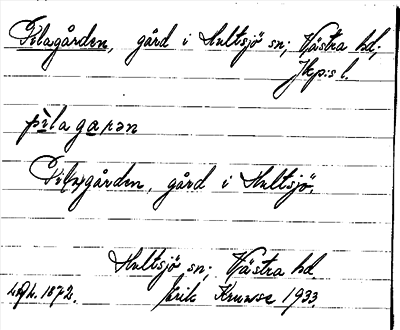 Pilagården, gård i Hultsjö sn; Västra hd;
Jkp:s l.
pìlagaɲən
Pil(a)gården, gård i Hultsjö.
Hultsjö sn; Västra hd.
1872. Erik Kruuse 1933.